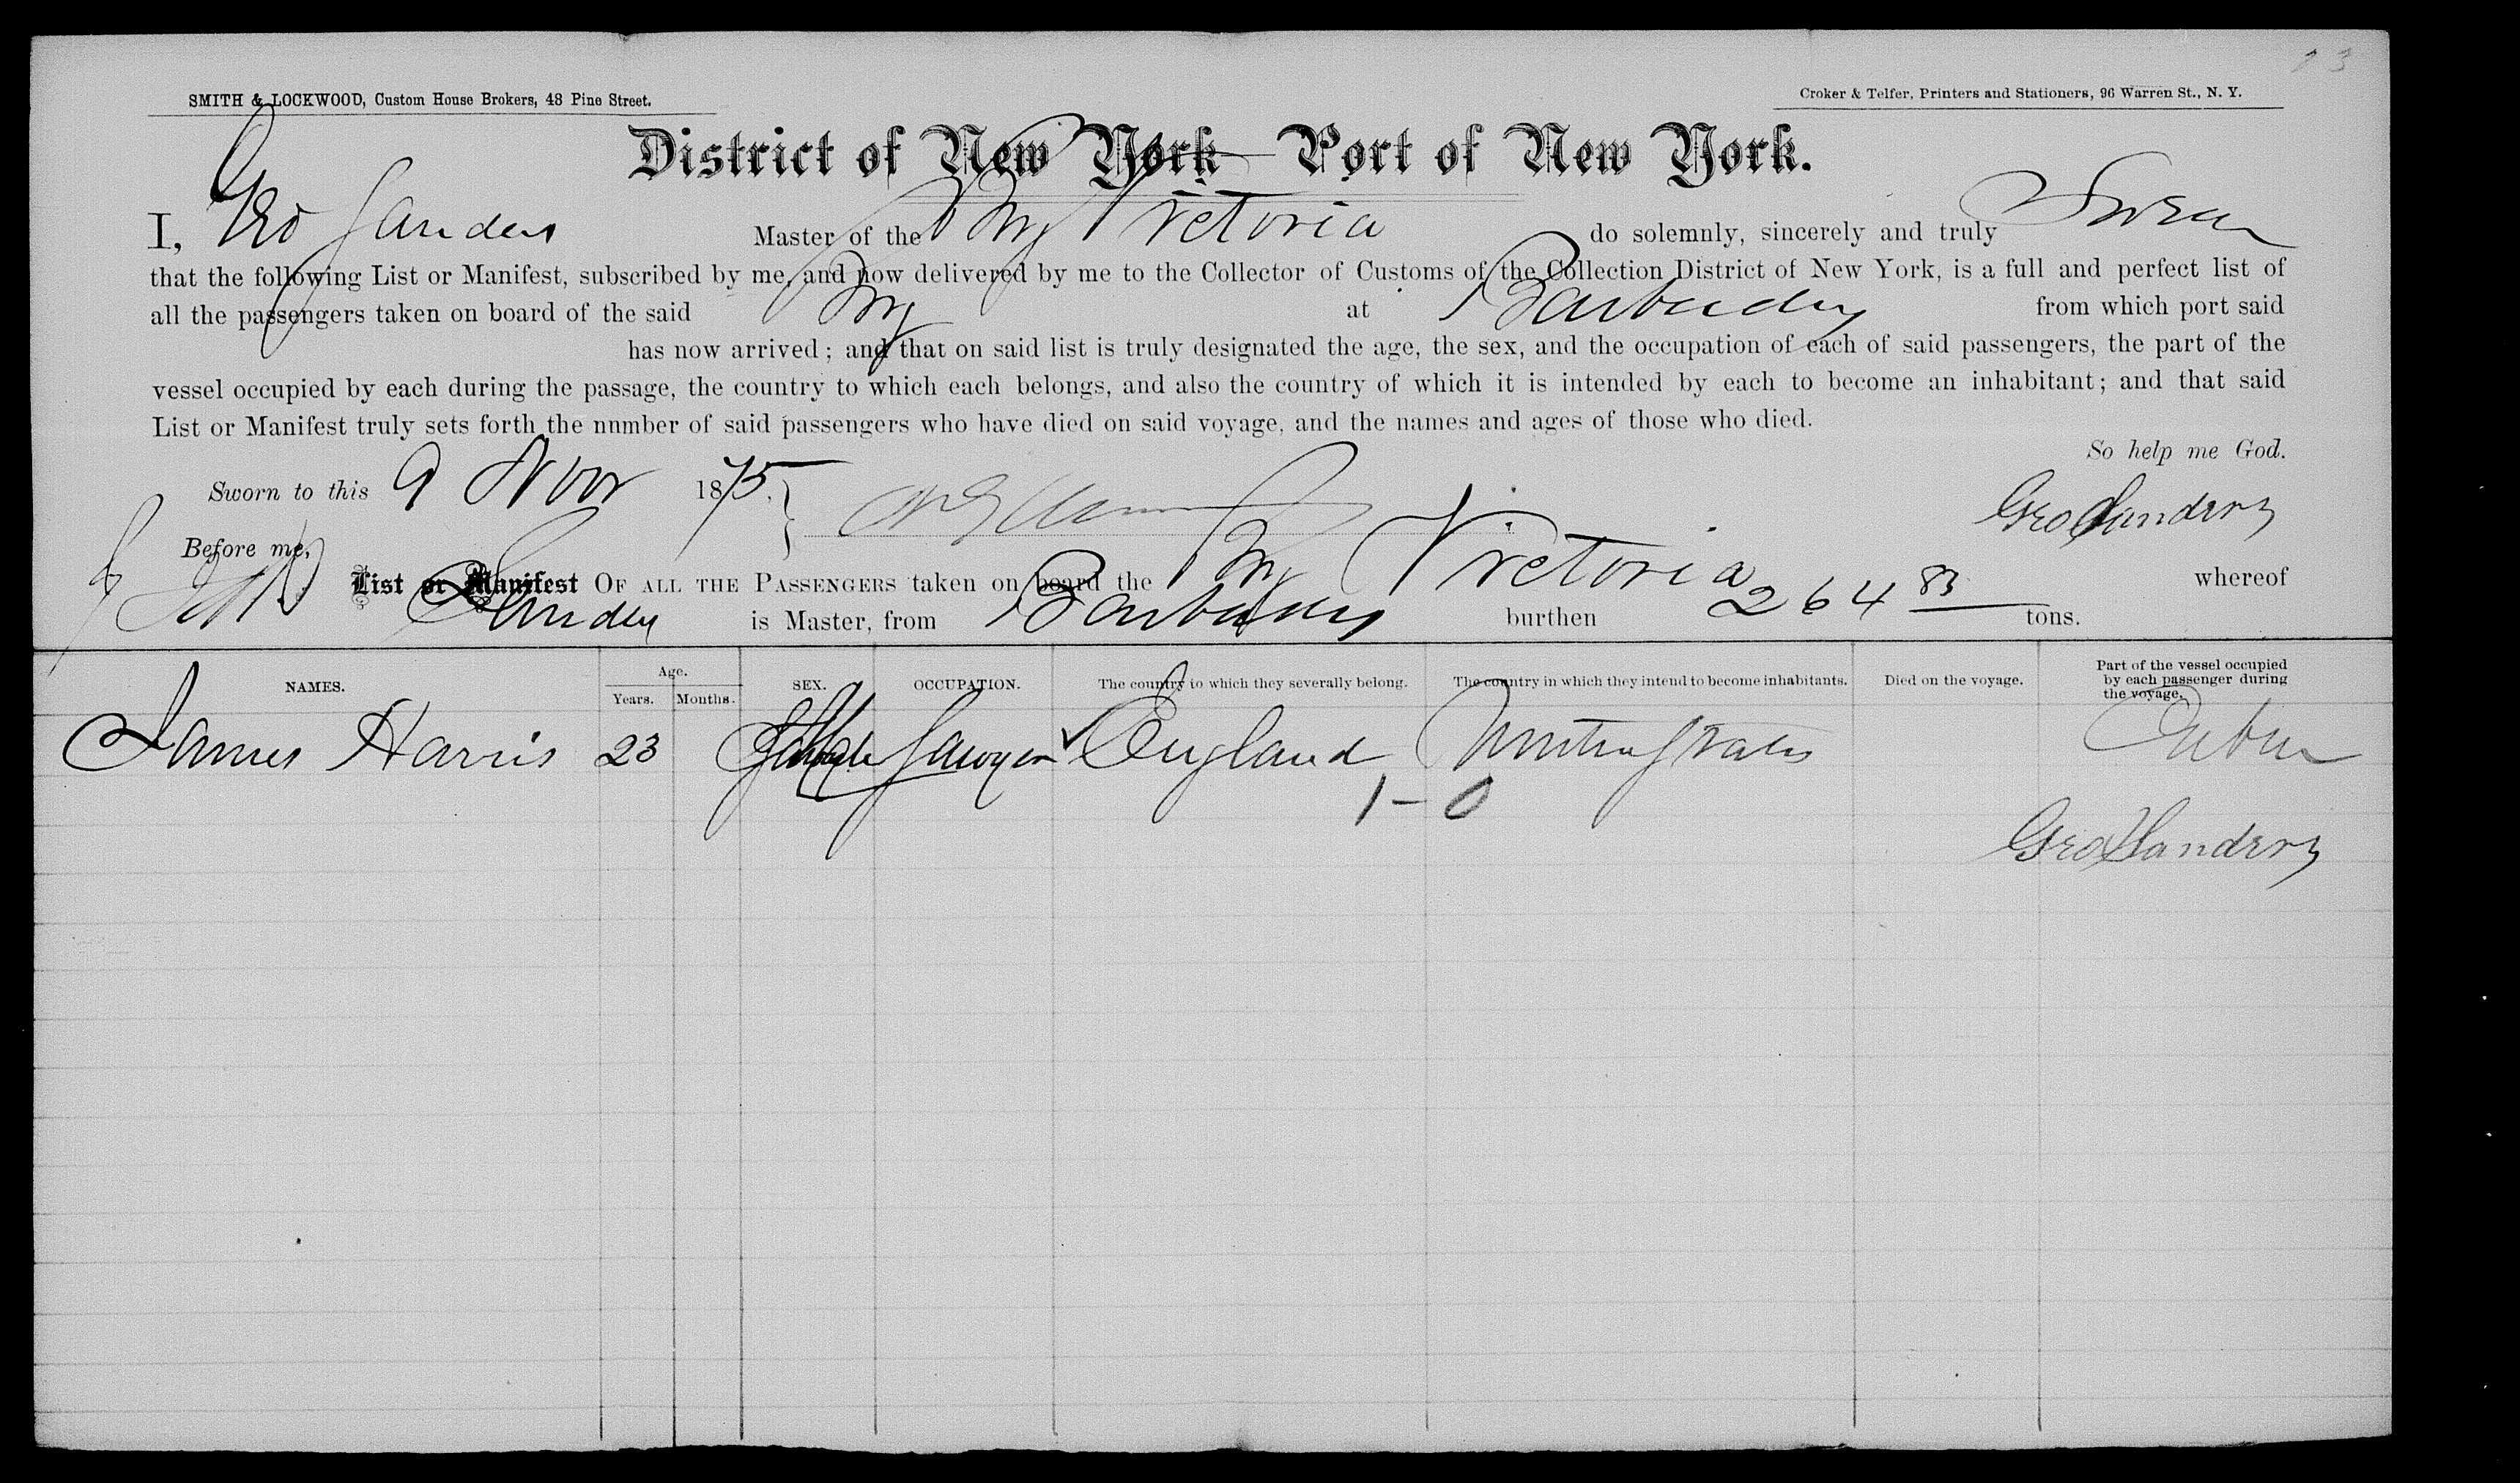 23
SMITH & LOCKWOOD, Custom House Brokers, 48 Pine Street.
Croker & Telfer, Printers and Stationers, 96 Warren St., N. Y.
District of New York—Port of New York.
I, Geo Sanders Master of the Brig Victoria do solemnly, sincerely and truly Swear
that the following List or Manifest, subscribed by me, and now delivered by me to the Collector of Customs of the Collection District of New York, is a full and perfect list of
all the passengers taken on board of the said Brig at Barbados from which port said
has now arrived; and that on said list is truly designated the age, the sex, and the occupation of each of said passengers, the part of the
vessel occupied by each during the passage, the country to which each belongs, and also the country of which it is intended by each to become an inhabitant; and that said
List or Manifest truly sets forth the nnmber of said passengers who have died on said voyage, and the names and ages of those who died.
So help me God.
Sworn to this 9 Nov 1875.
Geo Sanders
Before me,
List or Manifest OF ALL THE PASSENGERS taken on board the Brig Victoria whereof
Sanders is Master, from Barbados burthen 264 83 tons.
NAMES. Age. Years. Months. SEX. OCCUPATION. The country to which they severally belong. The country in which they intend to become inhabitants. Died on the voyage. Part of the vessel occupied by each passenger during the voyage.
James Harris 23 Male Lawyer England United States Cabin
1-0
Geo Sanders